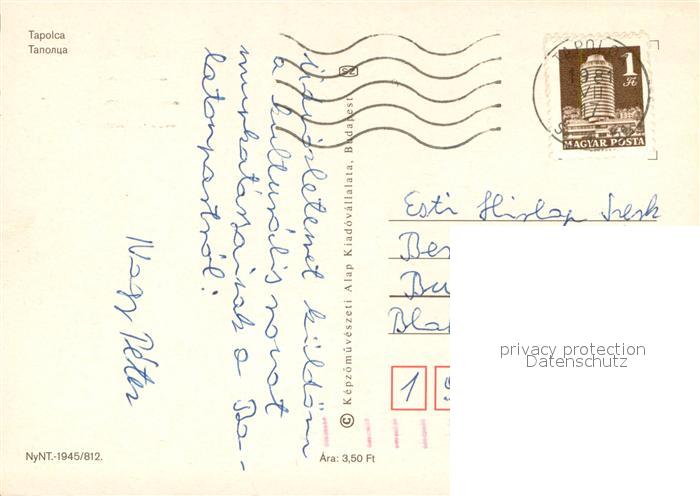 Tapolca
Тапопца
Üdvözletemet küldöm
a kulturális rovat
munkatársainak a Ba-
latonpartról:
Nagy Péter
© Képzőművészeti Alap Kiadóvállalata, Budapest
SZ
TAPOLCA
198
VII
1 Ft
MAGYAR POSTA
Esti Hirlap Szerk
Be
Bu
Bla
1
privacy protection
Datenschutz
NyNT.-1945/812.
Ára: 3,50 Ft